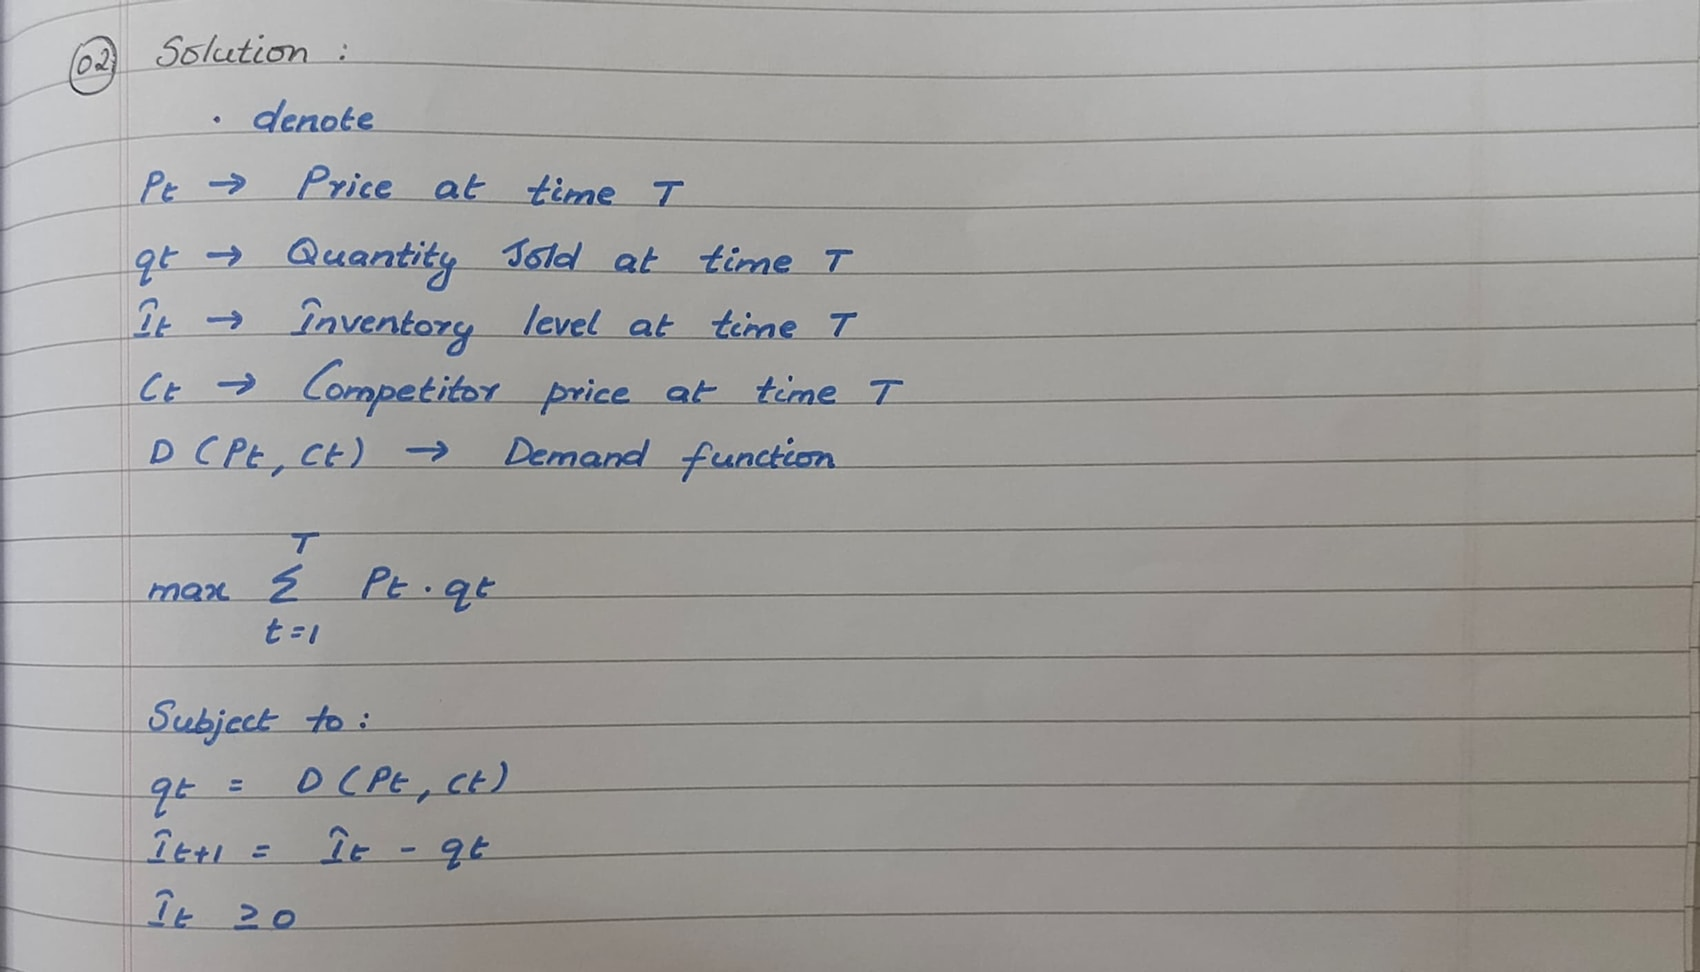 02 Solution :
· denote
Pt → Price at time T
qt → Quantity Sold at time T
Ît → Înventory level at time T
Ct → Competitor price at time T
D (Pt, Ct) → Demand function
T
max Σ Pt · qt
t=1
Subject to :
qt = D (Pt, Ct)
Ît+1 = Ît - qt
Ît ≥ 0